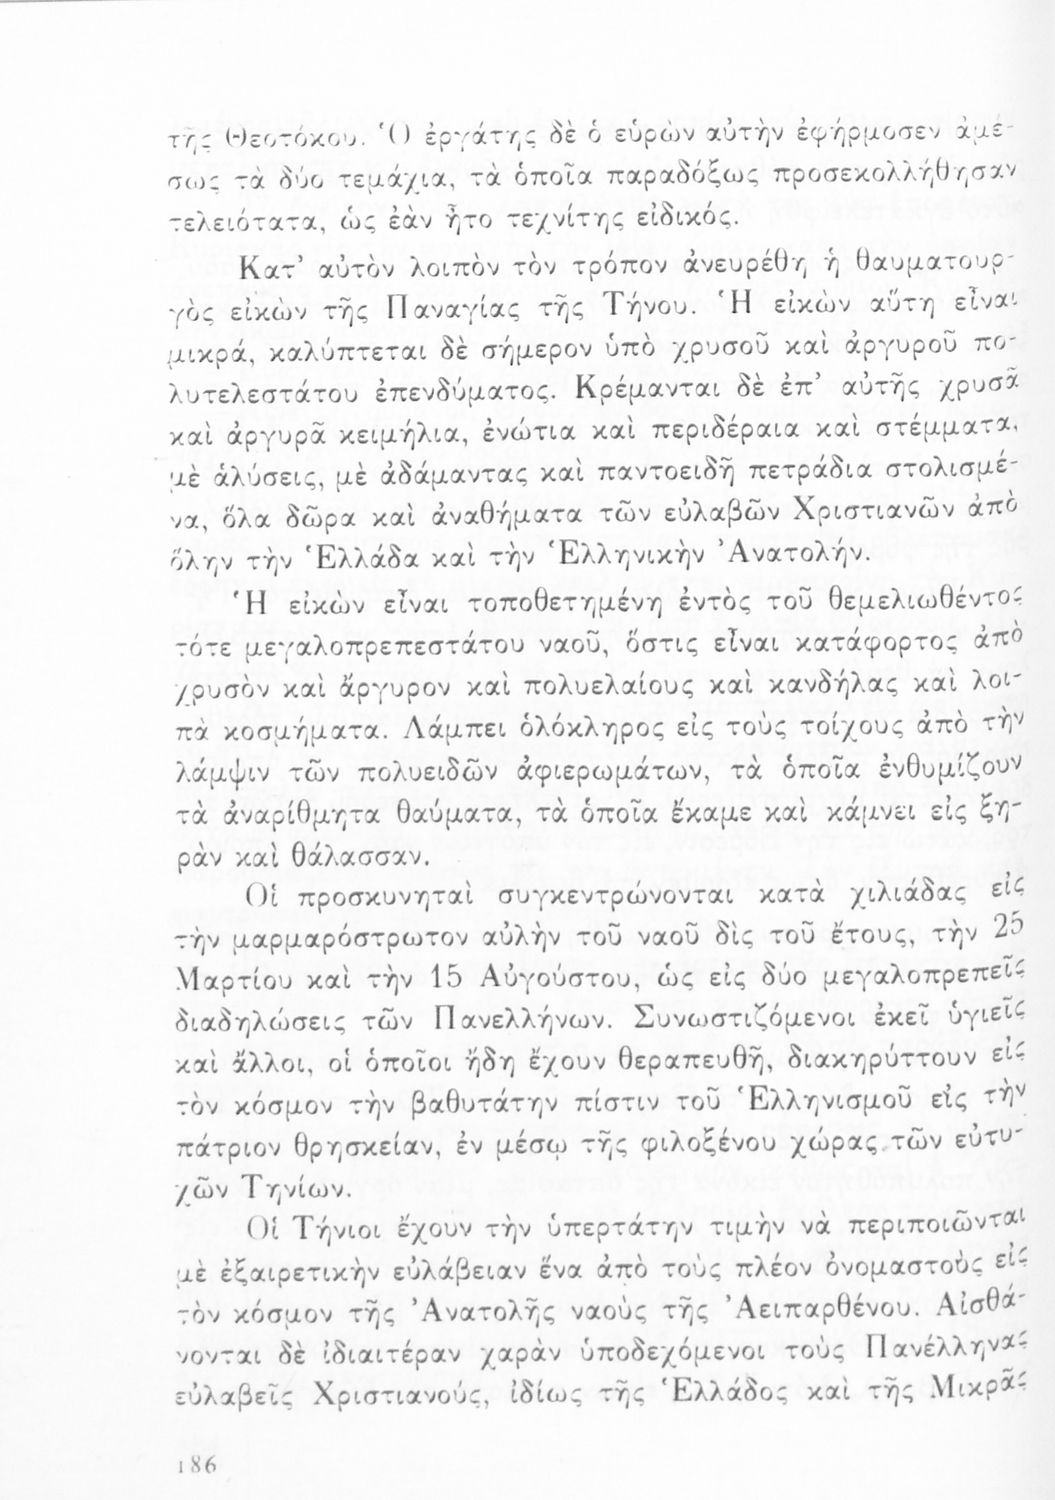 τῆς Θεοτόκου. Ὁ ἐργάτης δὲ ὁ εὑρὼν αὐτὴν ἐφήρμοσεν ἀμέ-
σως τὰ δύο τεμάχια, τὰ ὁποῖα παραδόξως προσεκολλήθησαν
τελειότατα, ὡς ἐὰν ἦτο τεχνίτης εἰδικός.
Κατ’ αὐτὸν λοιπὸν τὸν τρόπον ἀνευρέθη ἡ θαυματουρ-
γὸς εἰκὼν τῆς Παναγίας τῆς Τήνου. Ἡ εἰκὼν αὕτη εἶναι
μικρά, καλύπτεται δὲ σήμερον ὑπὸ χρυσοῦ καὶ ἀργυροῦ πο-
λυτελεστάτου ἐπενδύματος. Κρέμανται δὲ ἐπ’ αὐτῆς χρυσᾶ
καὶ ἀργυρᾶ κειμήλια, ἐνώτια καὶ περιδέραια καὶ στέμματα,
μὲ ἁλύσεις, μὲ ἀδάμαντας καὶ παντοειδῆ πετράδια στολισμέ-
να, ὅλα δῶρα καὶ ἀναθήματα τῶν εὐλαβῶν Χριστιανῶν ἀπὸ
ὅλην τὴν Ἑλλάδα καὶ τὴν Ἑλληνικὴν Ἀνατολήν.
Ἡ εἰκὼν εἶναι τοποθετημένη ἐντὸς τοῦ θεμελιωθέντος
τότε μεγαλοπρεπεστάτου ναοῦ, ὅστις εἶναι κατάφορτος ἀπὸ
χρυσὸν καὶ ἄργυρον καὶ πολυελαίους καὶ κανδήλας καὶ λοι-
πὰ κοσμήματα. Λάμπει ὁλόκληρος εἰς τοὺς τοίχους ἀπὸ τὴν
λάμψιν τῶν πολυειδῶν ἀφιερωμάτων, τὰ ὁποῖα ἐνθυμίζουν
τὰ ἀναρίθμητα θαύματα, τὰ ὁποῖα ἔκαμε καὶ κάμνει εἰς ξη-
ρὰν καὶ θάλασσαν.
Οἱ προσκυνηταὶ συγκεντρώνονται κατὰ χιλιάδας εἰς
τὴν μαρμαρόστρωτον αὐλὴν τοῦ ναοῦ δὶς τοῦ ἔτους, τὴν 25
Μαρτίου καὶ τὴν 15 Αὐγούστου, ὡς εἰς δύο μεγαλοπρεπεῖς
διαδηλώσεις τῶν Πανελλήνων. Συνωστιζόμενοι ἐκεῖ ὑγιεῖς
καὶ ἄλλοι, οἱ ὁποῖοι ἤδη ἔχουν θεραπευθῆ, διακηρύττουν εἰς
τὸν κόσμον τὴν βαθυτάτην πίστιν τοῦ Ἑλληνισμοῦ εἰς τὴν
πάτριον θρησκείαν, ἐν μέσῳ τῆς φιλοξένου χώρας τῶν εὐτυ-
χῶν Τηνίων.
Οἱ Τήνιοι ἔχουν τὴν ὑπερτάτην τιμὴν νὰ περιποιῶνται
μὲ ἐξαιρετικὴν εὐλάβειαν ἕνα ἀπὸ τοὺς πλέον ὀνομαστοὺς εἰς
τὸν κόσμον τῆς Ἀνατολῆς ναοὺς τῆς Ἀειπαρθένου. Αἰσθά-
νονται δὲ ἰδιαιτέραν χαρὰν ὑποδεχόμενοι τοὺς Πανέλληνας
εὐλαβεῖς Χριστιανούς, ἰδίως τῆς Ἑλλάδος καὶ τῆς Μικρᾶς
186